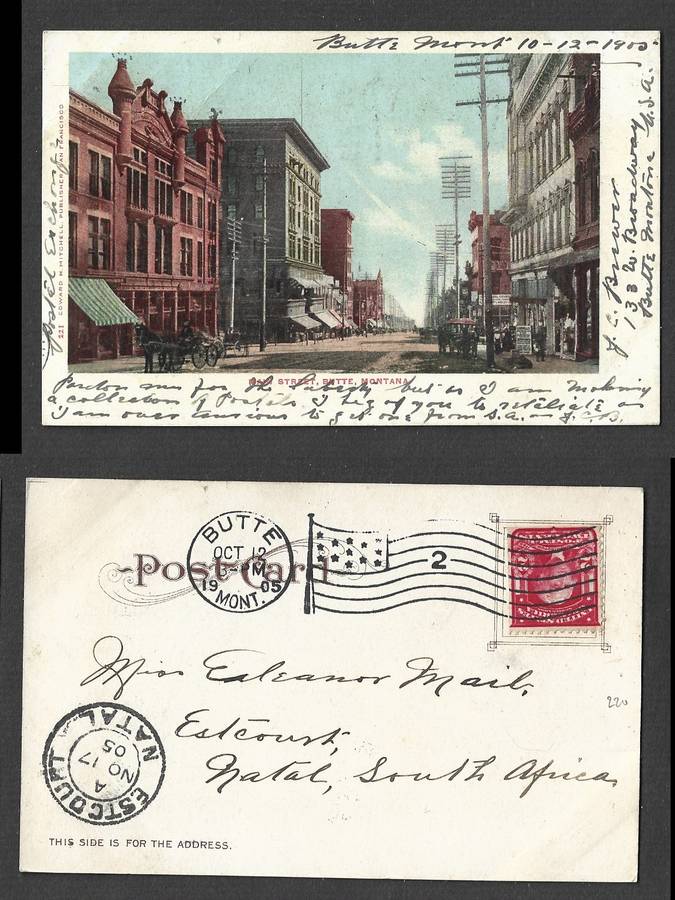 Butte Mont 10-12-1905
J. C. Brewer
133 W. Broadway
Butte Montana U.S.A.
Postal Exchange
221 EDWARD H. MITCHELL, PUBLISHER, SAN FRANCISCO
MAIN STREET, BUTTE, MONTANA
Pardon me for so having but as I am making
a collection of Postals I beg of you to retaliate as
I am over anxious to get one from S.A. J.C.B.
Post Card
BUTTE
OCT 12
3-PM
19 05
MONT.
2
Miss Eleanor Mail,
Estcourt,
Natal, South Africa
220
ESTCOURT NATAL
A
NO 17
05
THIS SIDE IS FOR THE ADDRESS.